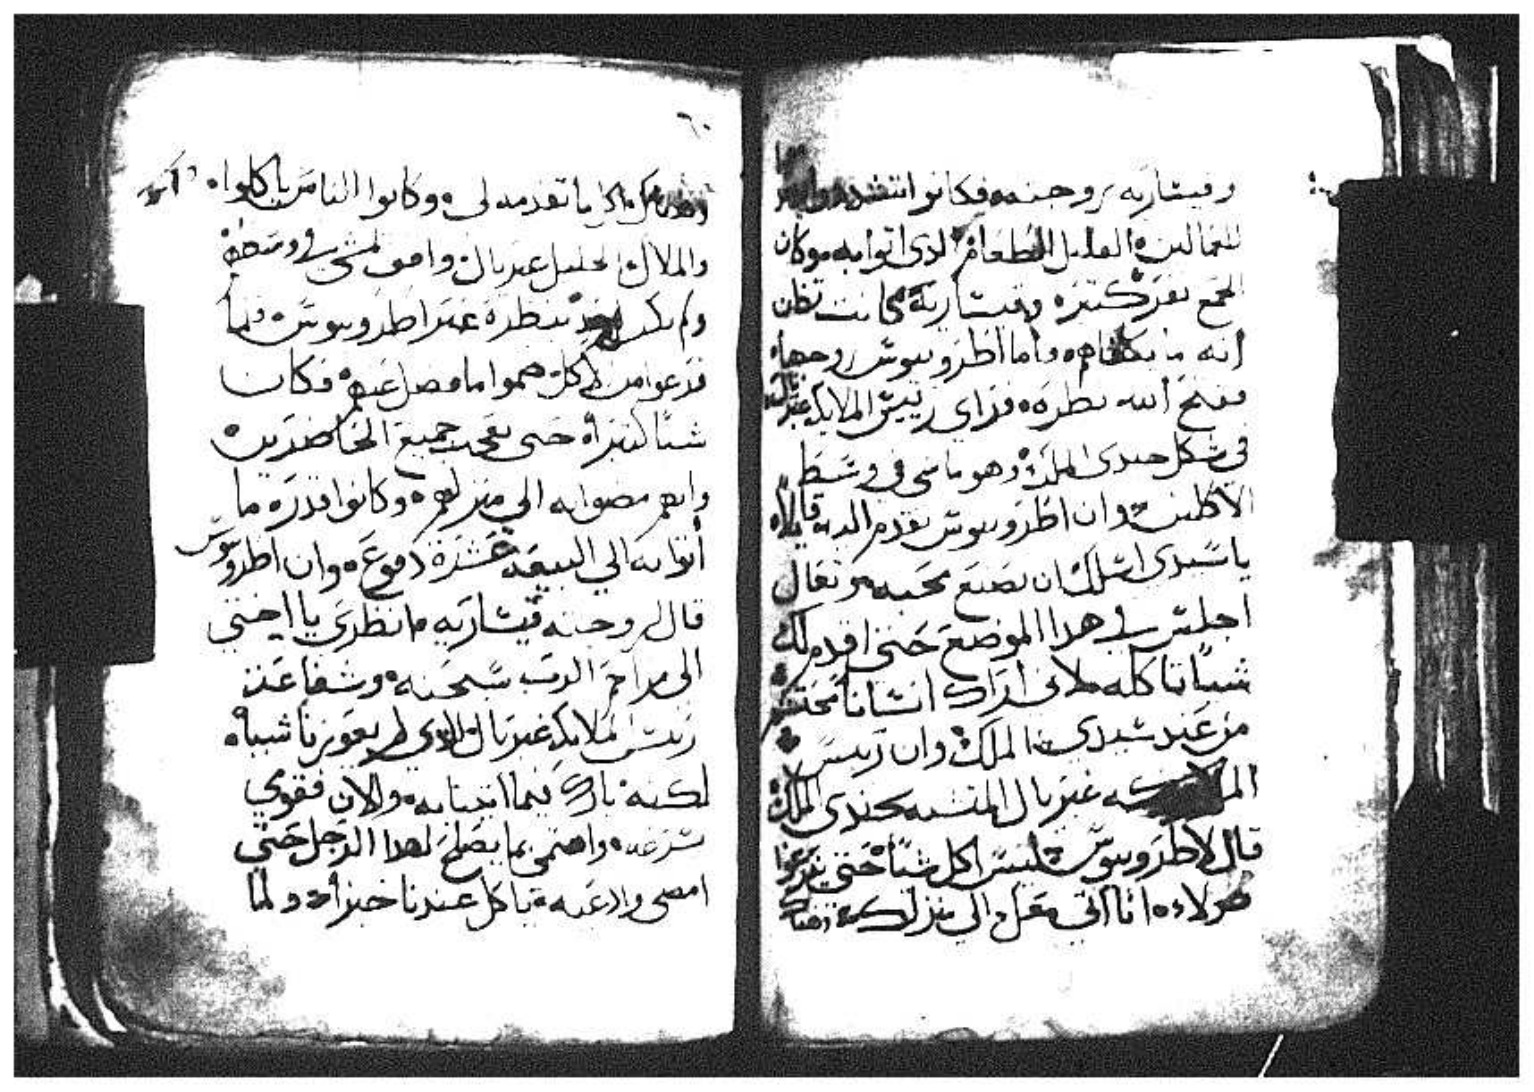 وفيشاريه زوجته فكانوا انتقدوا
للعمالين القليل الطعام الذي اتوا به وكان
الجمع نفر كتيره وفيشاريه كانت تظن
انه ما يكفاهم واما اطروبيوس زوجها
ففتح الله نظره فراي رييس الملايكه غبريال
في شكل جندي الملك وهو ماشي في وسط
الاكلين وان اطروبيوس تقدم اليه قايلاً
يا سيدي اسلك ان تصنع محبه وتعال
اجلس في هدا الموضع حتى اقدم لك
شياً تاكله لاني اراك انساناً محتشم
من عند سيدي الملك وان رييس
الملايكه غبريال المتشبه بجندي الملك
قال لاطروبيوس ليس اكل شياً حتى يفرغوا
هولاء انا اتي معك الي منزلك هناك
ما تقدمه لي وكانوا الناس ياكلوا
والملاك الجليل غبريال واقف يمشي في وسطهم
ولم يكن احد ينظره غير اطروبيوس فلما
فرغوا من الاكل ضموا ما فضل عنهم فكان
شياً كتيراً حتى تعجب جميع الحاضرين
وانهم مضوا به الي منزلهم وكانوا قدره ما
أتوا به الي البيعه عشرة دفوع وان اطروبيوس
قال لزوجته فيشاريه ما تنظري يا اختي
الى مراحم الرب سبحنه وشفاعة
رييس الملايكه غبريال الذي لم يعوزنا شياً
لكنه بارك فيما اتينا به والان فقوي
بسرعه واهتمي بما يصلح لهدا الرجل حتى
امضي وادعيه ياكل عندنا خبزاً ولما